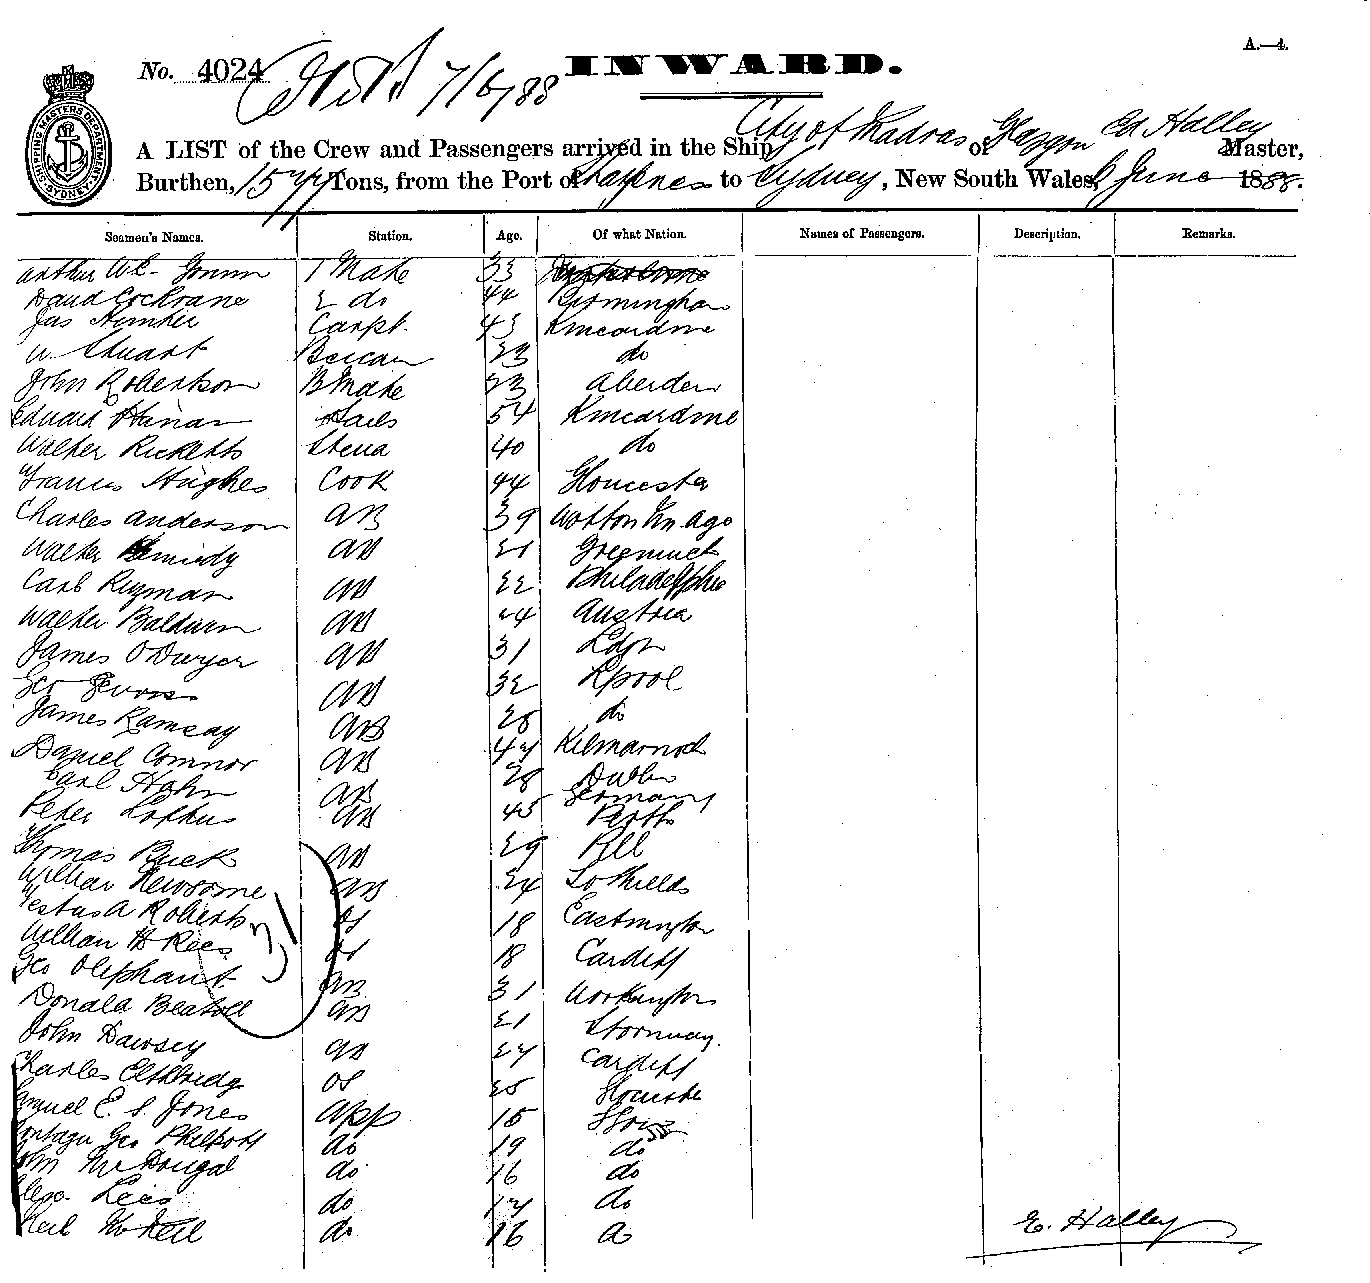 A.—4.
No. 4024 7/6/88 INWARD.
SHIPPING MASTERS DEPARTMENT SYDNEY
A LIST of the Crew and Passengers arrived in the Ship City of Madras of Glasgow Ed Halley Master,
Burthen, 1577 Tons, from the Port of to Sydney, New South Wales, 6 June 1888.
Seamen's Names. Station. Age. Of what Nation. Names of Passengers. Description. Remarks.
Arthur 1 Mate 33
David Cockrane 2 do 44 Birmingham
Jas Hunter Carpt. 43 Kincardine
W Stuart 23 do
John Robertson B Mate 23 Aberdeen
Edward Sails 54 Kincardine
Walter Ricketts Stewd 40 do
Francis Hughes Cook 44 Gloucester
Charles Anderson AB 39
Walter Kennedy AB 21
Carl AB 22 Philadelphia
Walter Baldwin AB 24 Austria
James O'Dwyer AB 31 Ldon
Geo AB 32 Lpool
James Ramsay AB 28 do
Daniel Connor AB 47 Kilmarnock
Carl Hahn AB 28 Dublin
Peter Loftus AB 45 Germany
Thomas Buck AB 29 Perth
William Newsome AB 24 Pill
Roberts OS 18 So Shields
William H Rees OS 18 Eastington
Geo Oliphant AB 31 Cardiff
31
Donald AB 21 Workington
John Dawsey AB 27 Stornway
Charles OS 25 Cardiff
Samuel E. S. Jones App 15 Gloucester
Montagu Geo Philpott do 19 do
John McDougal do 16 do
Alexr Lees do 17 do
Neil McNeil do 16
E. Halley